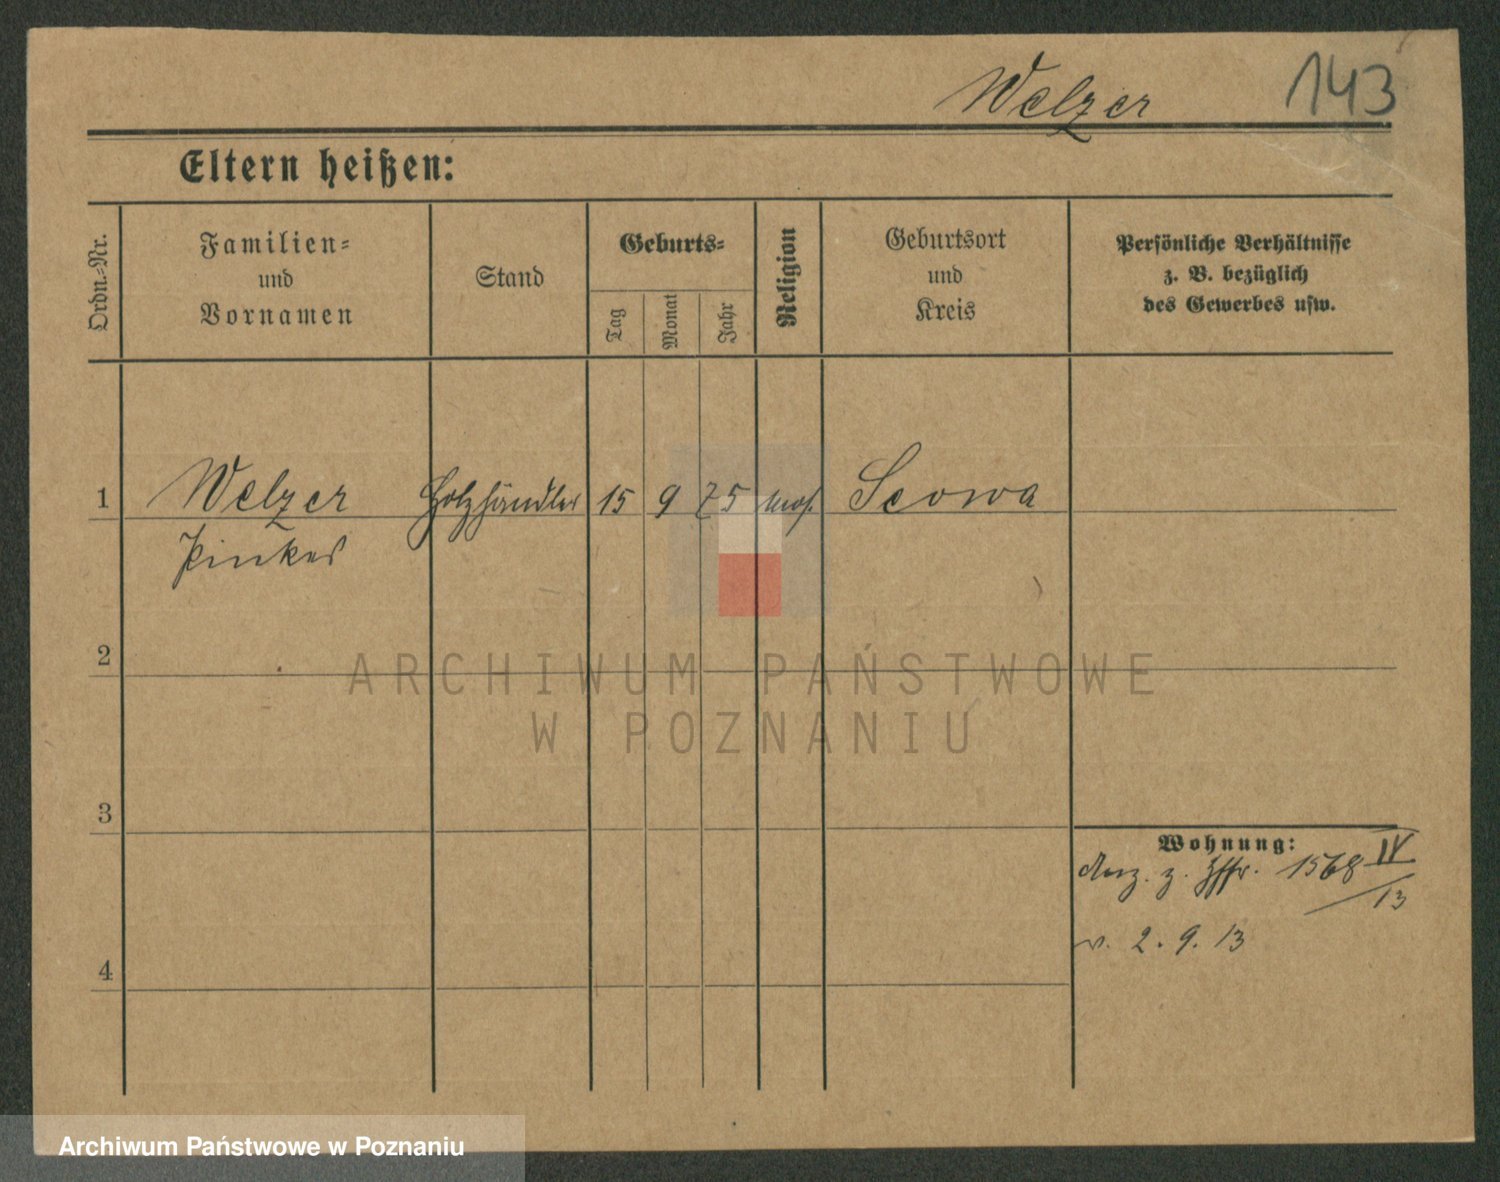 Welzer 143
Eltern heißen:
Ordn.-Nr.
Familien-
und
Vornamen
Stand
Geburts-
Tag
Monat
Jahr
Religion
Geburtsort
und
Kreis
Persönliche Verhältnisse
z. B. bezüglich
des Gewerbes usw.
1 Welzer Holzhändler 15 9 75 mos. Scowa
Pinkus
2
ARCHIWUM PAŃSTWOWE
W POZNANIU
3
Wohnung:
z. 1568 IV
13
v. 2. 9. 13
4
Archiwum Państwowe w Poznaniu